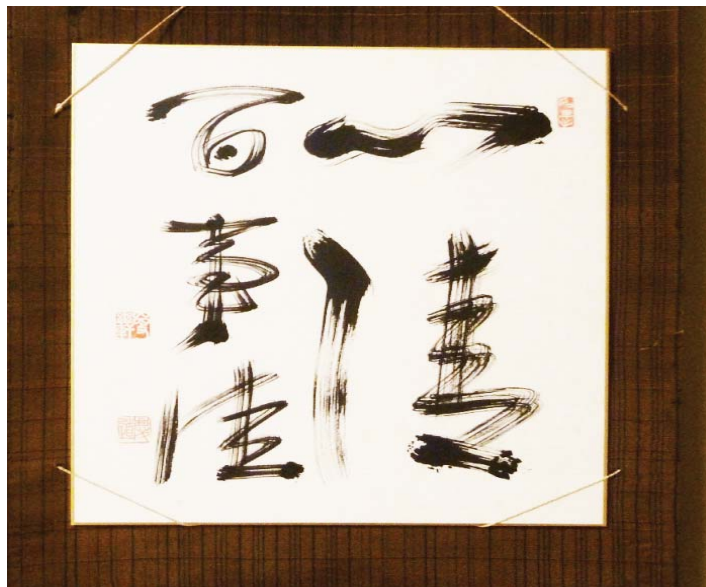 一佳
百事佳